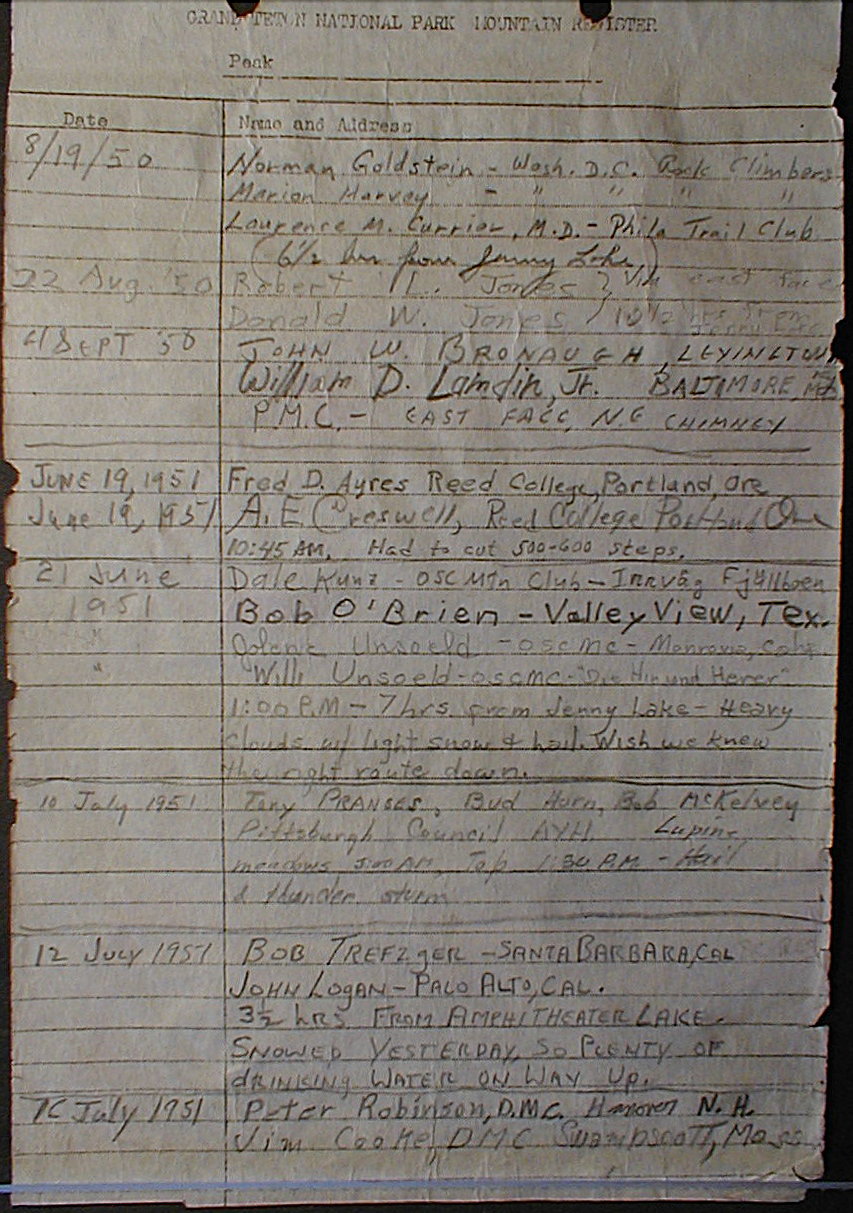 GRAND TETON NATIONAL PARK MOUNTAIN REGISTER
Peak
Date
Name and Address
8/19/50 Norman Goldstein - Wash. D.C. Rock Climbers
Marion Harvey - " " " "
Laurence M. Currier, M.D. - Phila Trail Club
(6½ hrs from Jenny Lake)
22 Aug. '50 Robert L. Jones } Via east face
Donald W. Jones } 10½ hrs from Jenny Lake
4 SEPT '50 JOHN W. BRONAUGH, LEXINGTON,
William D. Lamdin, Jr. BALTIMORE, Md.
P.M.C. - EAST FACE, N.E CHIMNEY
JUNE 19, 1951 Fred D. Ayres Reed College, Portland, Ore
June 19, 1951 A. E. Creswell, Reed College Portland Ore
10:45 AM. Had to cut 500-600 steps.
21 June Dale Kunz - OSC Mtn Club -
1951 Bob O'Brien - Valley View, Tex.
" Jolene Unsoeld - OSCMC - Monrovia, Calif.
" Willi Unsoeld - OSCMC - "Die Hin und Herer"
1:00 P.M - 7 hrs. from Jenny Lake - Heavy
clouds w/ light snow & hail. Wish we knew
the right route down.
10 July 1951 Tony PRANSES, Bud Horn, Bob McKelvey
Pittsburgh Council AYH. Lupine
meadows 5:00 AM, Top 1:30 P.M - Hail
& thunder storm
12 JULY 1951 BOB TREFZGER - SANTA BARBARA, CAL
JOHN LOGAN - PALO ALTO, CAL.
3½ HRS FROM AMPHITHEATER LAKE.
SNOWED YESTERDAY, SO PLENTY OF
DRINKING WATER ON WAY UP.
July 1951 Peter Robinson, D.M.C. Hanover N.H.
Jim Cooke, DMC Swampscott, Mass